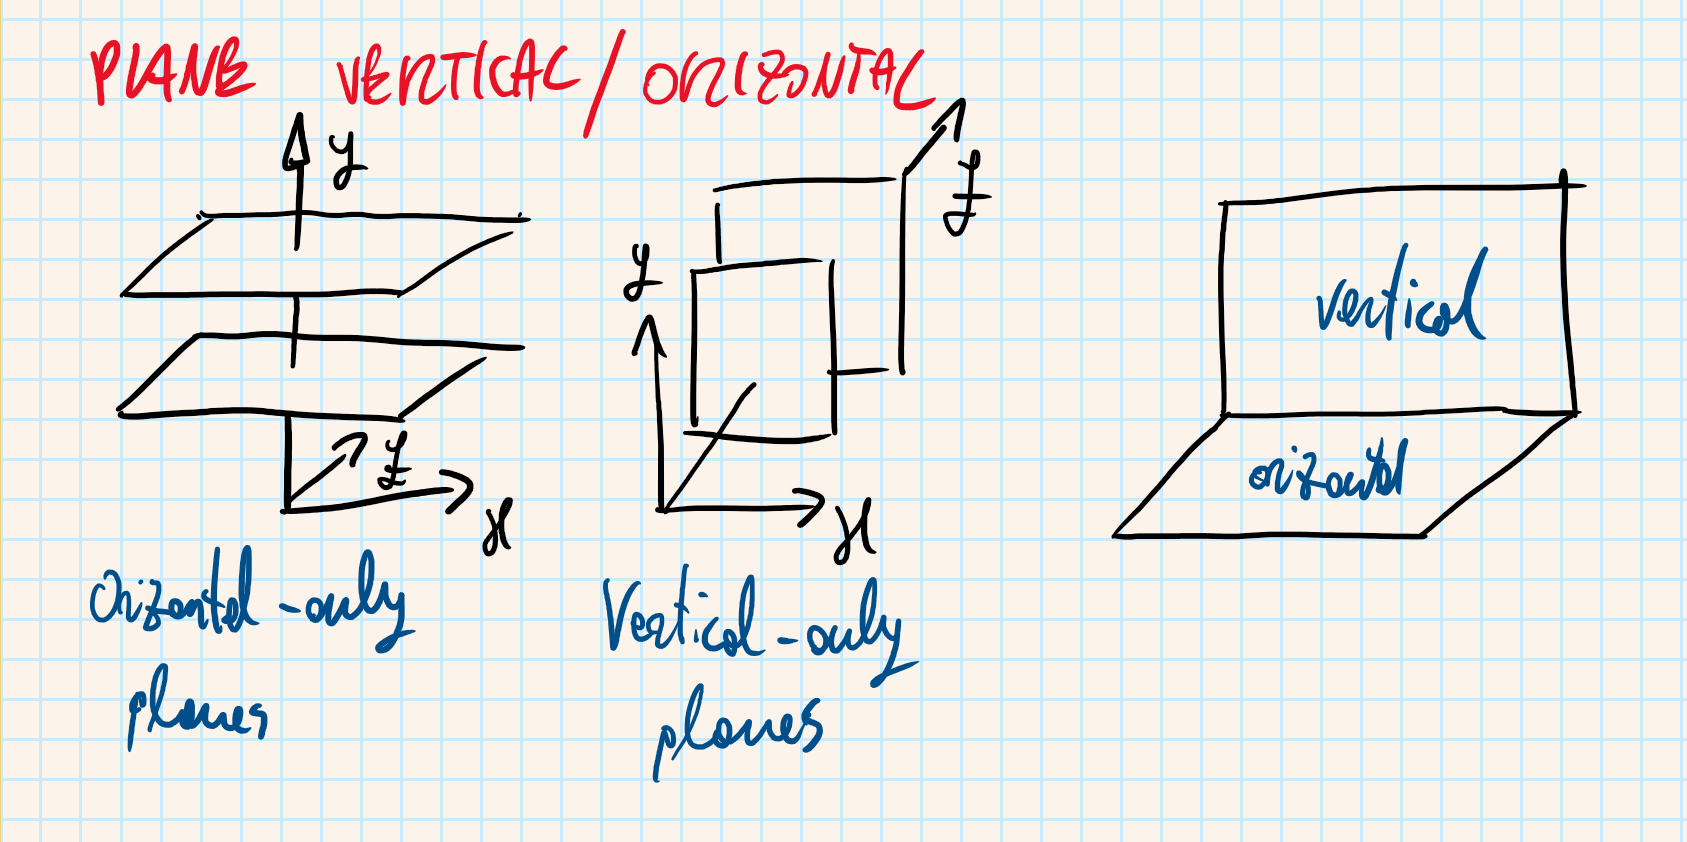 PLANE VERTICAL/ORIZONTAL
y
z
x
Orizontal-only
planes
y
z
x
Vertical-only
planes
vertical
orizontal